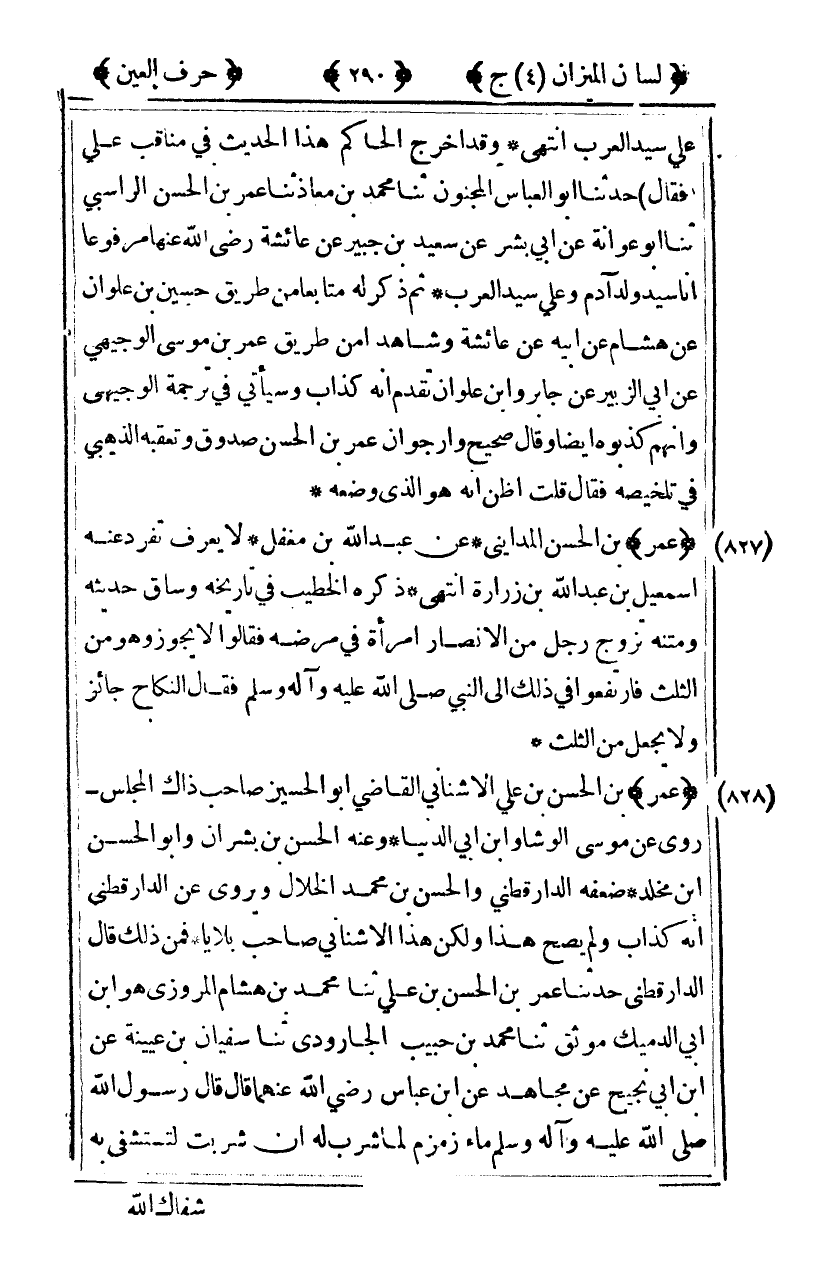 ﴿ لسان الميزان (٤) ج ﴾ ﴿ ٢٩٠ ﴾ ﴿ حرف العين ﴾
علي سيد العرب انتهى * وقد اخرج الحاكم هذا الحديث في مناقب علي
(فقال) حدثنا ابو العباس المجنون ثنا محمد بن معاذ ثنا عمر بن الحسن الراسبي
ثنا ابو عوانة عن ابي بشر عن سعيد بن جبير عن عائشة رضى الله عنها مرفوعا
انا سيد ولد آدم وعلي سيد العرب * ثم ذكر له متابعا من طريق حسين بن علوان
عن هشام عن ابيه عن عائشة وشاهد امن طريق عمر بن موسى الوجيهي
عن ابي الزبير عن جابر وابن علوان تقدم انه كذاب وسيأتي في ترجمة الوجيهى
وانهم كذبوه ايضا وقال صحيح وارجو ان عمر بن الحسن صدوق وتعقبه الذهبي
في تلخيصه فقال قلت اظن انه هو الذى وضعه *
(٨٢٧) ﴿ عمر ﴾ بن الحسن المدايني * عن عبد الله بن مغفل * لا يعرف تفرد عنه
اسمعيل بن عبد الله بن زرارة انتهى * ذكره الخطيب في تاريخه وساق حديثه
ومتنه تزوج رجل من الانصار امرأة في مرضه فقالوا لا يجوز وهو من
الثلث فارتفعوا في ذلك الى النبي صلى الله عليه وآله وسلم فقال النكاح جائز
ولا يجعل من الثلث *
(٨٢٨) ﴿ عمر ﴾ بن الحسن بن علي الاشناني القاضي ابو الحسين صاحب ذاك المجلس -
روى عن موسى الوشاو ابن ابي الدنيا * وعنه الحسن بن بشران وابو الحسن
ابن مخلد * ضعفه الدارقطني والحسن بن محمد الخلال ويروى عن الدارقطنى
أنه كذاب ولم يصح هذا ولكن هذا الاشناني صاحب بلايا * فمن ذلك قال
الدارقطنى حدثنا عمر بن الحسن بن علي ثنا محمد بن هشام المروزى هو ابن
ابي الدميك موثق ثنا محمد بن حبيب الجارودى ثنا سفيان بن عيينة عن
ابن ابي نجيح عن مجاهد عن ابن عباس رضي الله عنهما قال قال رسول الله
صلى الله عليه وآله وسلم ماء زمزم لما شرب له ان شربت لتستشفى به
شفاك الله